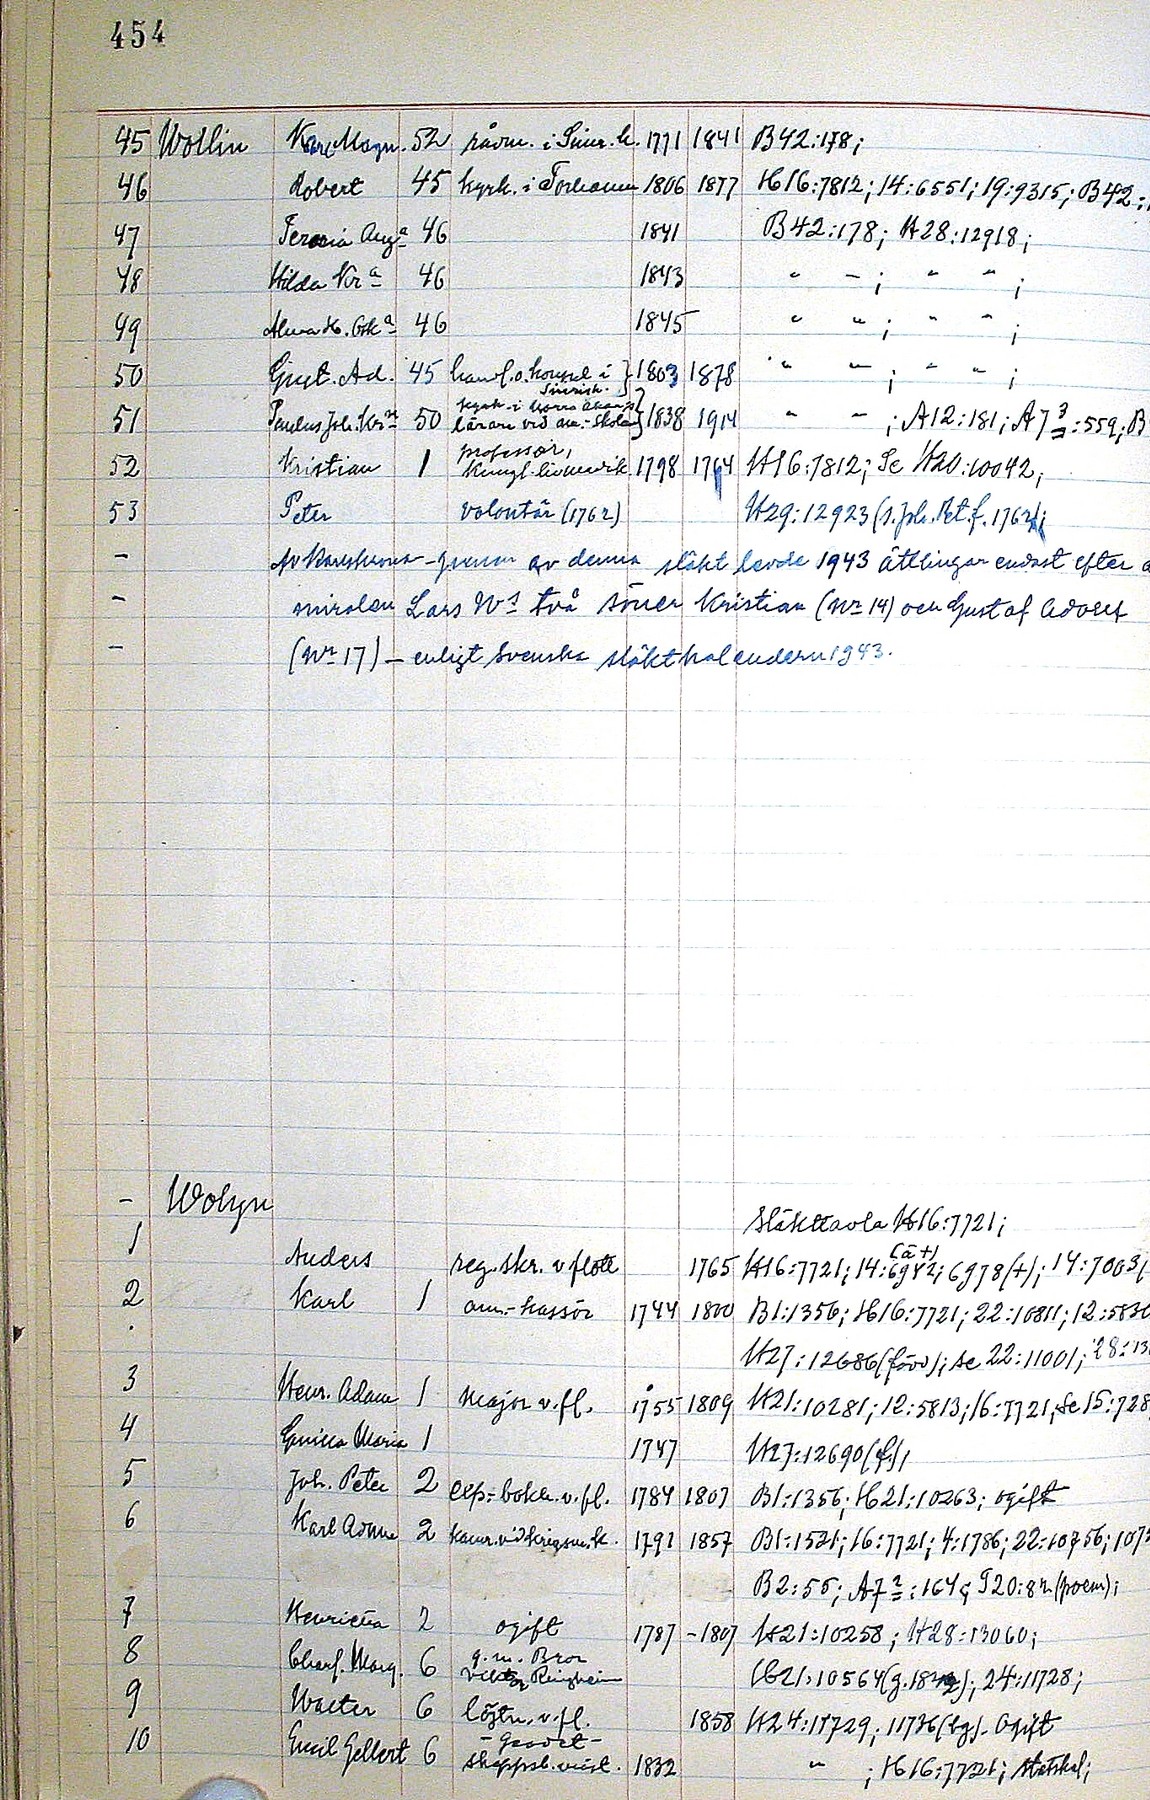 454
45 Wollin Karl Magn. 52 rådm. i Simr.h. 1771 1841 B42:178;
46 Robert 45 kyrk. i Torhamn 1806 1877 H16:7812; 14:6551; 19:9315; B42:
47 Aug.a 46 1841 B42:178; H28:12918;
48 Hilda Kr.a 46 1843 " "; " " ;
49 Alma H. Osk.a 46 1845 " "; " " ;
50 Gust. Ad. 45 handl. o. konsul i } 1803 1878 " " ; " " ;
Simrish.
51 Paulus Joh. Kr.n 50 kyrk. i Norra Åkarp } 1838 1914 " " ; A12:181; A7 3:559; B
lärare vid
52 Kristian 1 professor, 1798 1764 H16:7812; Se H20:10042;
kungl.
53 Peter volontär (1762) H29:12923 (s. Joh. Pet. f. 1762);
- Av Karlskrona-grenen av denna släkt levde 1943 ättlingar endast efter
- Lars W:s två söner Kristian (Nr 14) och Gustaf Adolf
- (Nr 17) – enligt Svenska släktkalendern 1943.
- Wolyn Släkttavla H16:7721;
1 Anders reg. skr. v flott 1765 H16:7721; 14:6942; 6978(+); 14:7003;
2 Karl 1 am.-kassör 1744 1800 B1:1356; H16:7721; 22:10811; 12:5830
H27:12686 (förv); se 22:11001; 28:13
3 Henr. Adam 1 major v. fl. 1755 1809 H21:10281; 12:5813; 16:7721, se 15:728
4 Gunilla Maria 1 1747 H27:12690 (f);
5 Joh. Peter 2 exp.-bokh. v. fl. 1784 1807 B1:1356; H21:10263; ogift
6 Karl 2 kamr. vid krigsm.k. 1791 1857 B1:1521; 16:7721; 4:1786; 22:10756; 107
B2:55; A7 2:164; (poem);
7 Henrietta 2 ogift 1787 -1807 H21:10258; H28:13060;
8 Charl. Marg. 6 g. m. Bror H21:10564 ; 24:11728;
Viktor Ringheim
9 Walter 6 löjtn. v. fl. 1858 H24:11729; 11736 (bg). Ogift
10 Emil Gellert 6 skeppsb. 1832 " ; H16:7721;